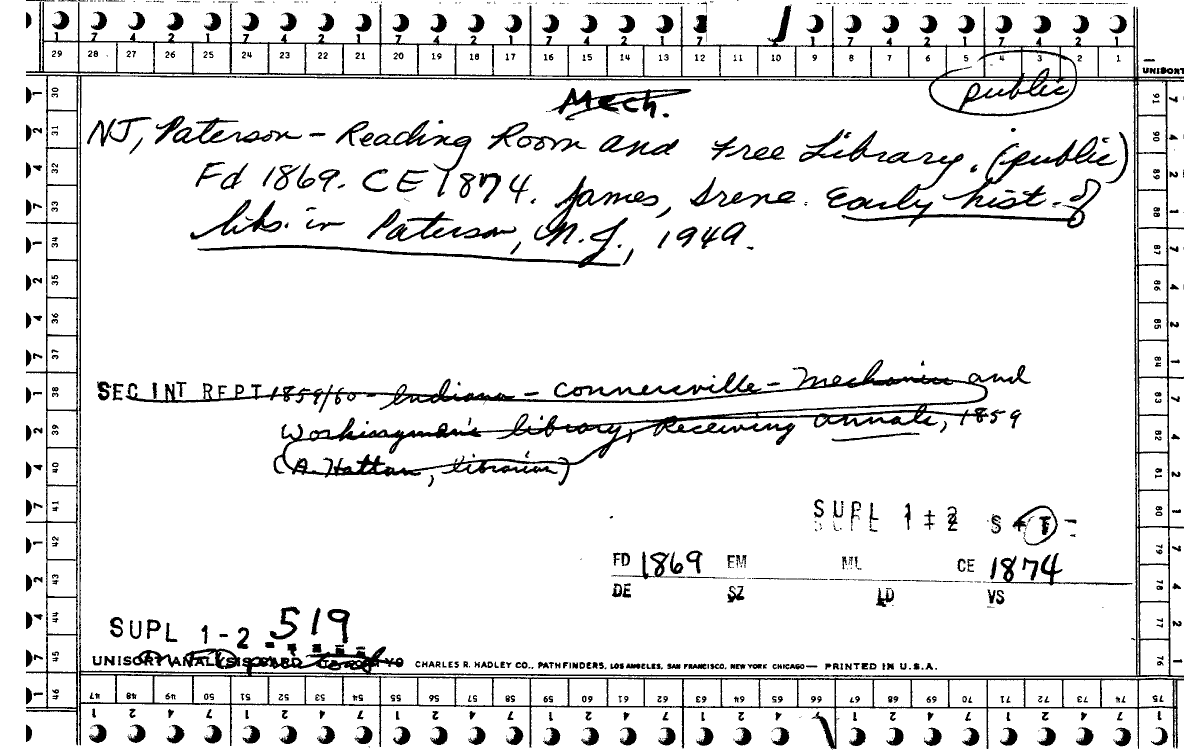 7 4 2 1 7 4 2 1 7 4 2 1 7 4 2 1 7 4 2 1 7 4 2 1
29 28 27 26 25 24 23 22 21 20 19 18 17 16 15 14 13 12 11 10 9 8 7 6 5 4 3 2 1
UNISORT
public
Mech.
NJ, Paterson - Reading Room and Free Library. (public)
Fd 1869. CE 1874. James, Irene. Early hist. of
libs. in Paterson, N.J., 1949.
SEC INT REPT 1859/60 - Indiana - Connersville - Mechanics and
Workingman's library, Receiving annals, 1859
(A. Hattan, librarian)
SUPL 1 + 2 S + T -
FD 1869 EM ML CE 1874
DE SZ LD VS
SUPL 1-2 519
UNISORT ANALYSIS CARD
CHARLES R. HADLEY CO., PATHFINDERS, LOS ANGELES, SAN FRANCISCO, NEW YORK CHICAGO — PRINTED IN U.S.A.
30 31 32 33 34 35 36 37 38 39 40 41 42 43 44 45 46
91 90 89 88 87 86 85 84 83 82 81 80 79 78 77 76 75
47 48 49 50 51 52 53 54 55 56 57 58 59 60 61 62 63 64 65 66 67 68 69 70 71 72 73 74 75